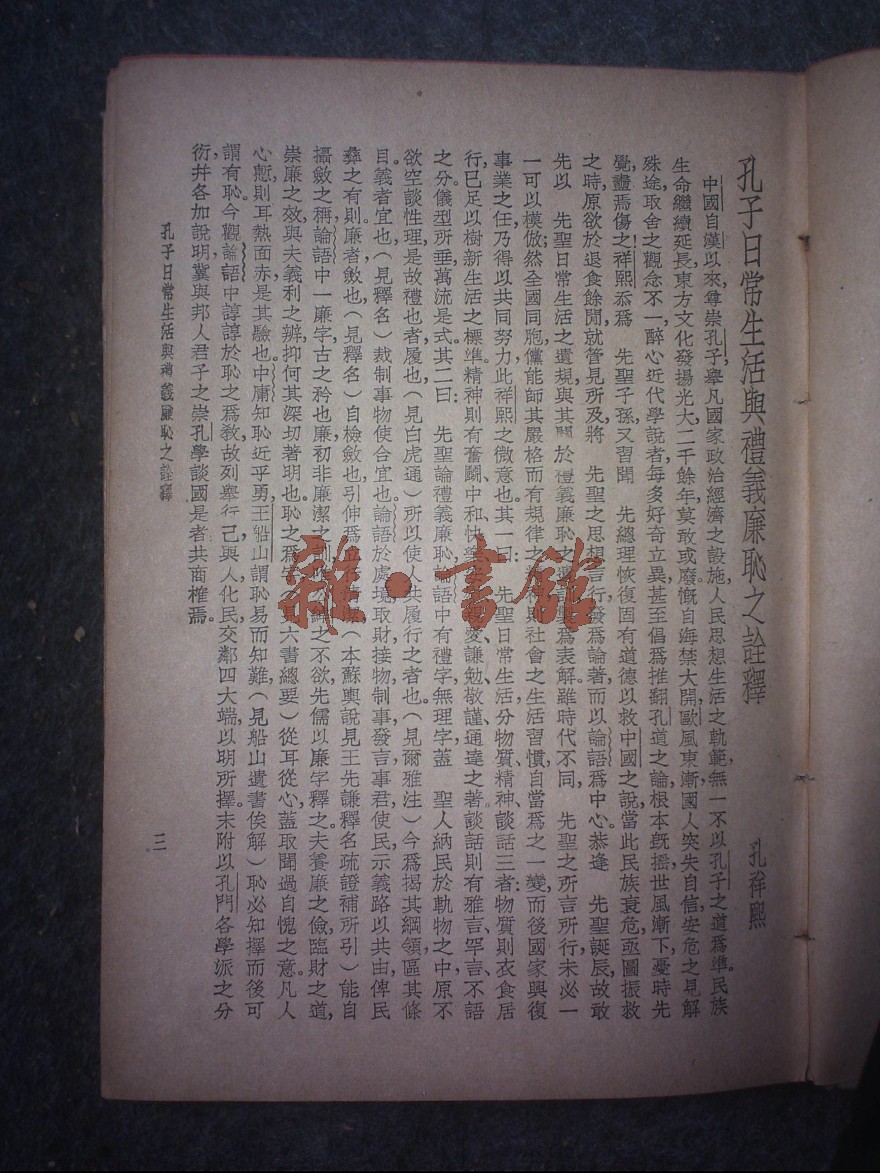 孔子日常生活與禮義廉恥之詮釋
孔祥熙
中國自漢以來，尊崇孔子，舉凡國家政治經濟之設施，人民思想生活之軌範，無一不以孔子之道爲準。民族
生命繼續延長，東方文化發揚光大，二千餘年，莫敢或廢。慨自海禁大開，歐風東漸，國人突失自信，安危之見解
殊途，取舍之觀念不一，醉心近代學說者，每多好奇立異，甚至倡爲推翻孔道之論，根本旣搖，世風漸下，憂時先
覺，盡焉傷之！祥熙忝爲　先聖子孫，又習聞　先總理恢復固有道德以救中國之說，當此民族衰危亟圖振救
之時，原欲於退食餘閒，就管見所及，將　先聖之思想言行，發爲論著，而以論語爲中心。恭逢　先聖誕辰，故敢
先以　先聖日常生活之遺規，與其關於禮義廉恥之　爲表解。雖時代不同，　先聖之所言所行，未必一
一可以模倣；然全國同胞，儻能師其嚴格而有規律之　則社會之生活習慣，自當爲之一變，而後國家興復
事業之任，乃得以共同努力，此祥熙之微意也。其一曰：　先聖日常生活，分物質精神、談話三者：物質則衣食居
行，已足以樹新生活之標準。精神則有奮鬭、中和、快　愛、謙勉、敬謹、通達之著。談話則有雅言、罕言、不語
之分，儀型所垂，萬流是式。其二曰：　先聖論禮義廉恥，論語中有禮字，無理字，蓋　聖人納民於軌物之中，原不
欲空談性理，是故禮也者，履也（見白虎通）所以使人共履行之者也。（見爾雅注）今爲揭其綱領，區其條
目。義者宜也（見釋名）裁制事物使合宜也。論語於處境取財，接物制事，發言事君使民，示義路以共由，俾民
彝之有則。廉者斂也（見釋名）自檢斂也，引伸爲　（本蘇輿說見王先謙釋名疏證補所引）能自
攝斂之稱，論語中一廉字，古之矜也廉，初非廉潔之　之不欲，先儒以廉字釋之。夫養廉之儉，臨財之道，
崇廉之效，與夫義利之辨，抑何其深切著明也。恥之爲　六書總要）從耳從心，蓋取聞過自愧之意。凡人
心慙則耳熱面赤，是其驗也。中庸知恥近乎勇，王船山謂恥易而知難，（見船山遺書俟解）恥必知擇而後可
謂有恥。今觀論語中諄諄於恥之爲敎，故列舉行己，與人，化民，交鄰四大端，以明所擇。末附以孔門各學派之分
衍，幷各加說明，冀與邦人君子之崇孔學談國是者共商榷焉。
孔子日常生活與禮義廉恥之詮釋
三
雜·書館